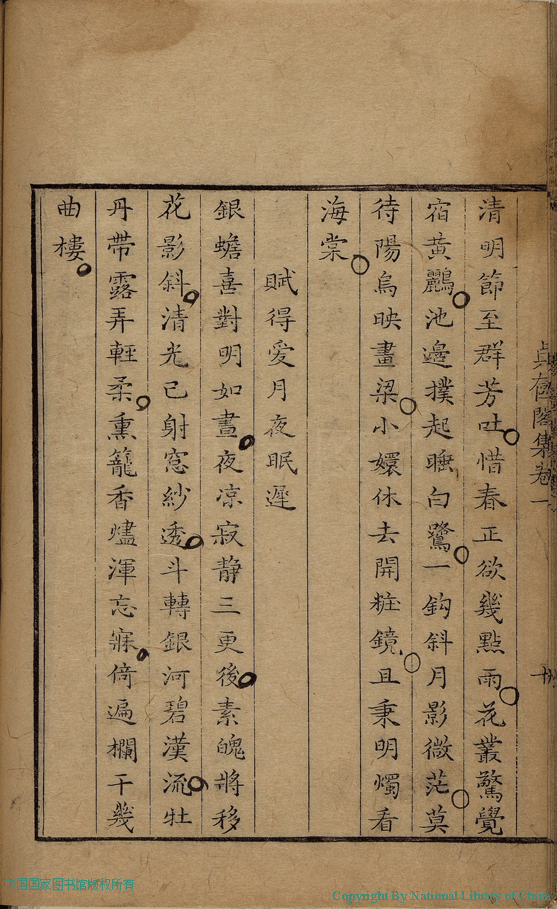 清明節至群芳吐惜春正欲幾點雨花叢驚覺
宿黃鸝池邊撲起睡白鷺一鈎斜月影微茫莫
待陽烏映畫梁小嬛休去開粧鏡且秉明燭看
海棠
賦得愛月夜眠遲
銀蟾喜對明如晝夜凉寂静三更後素魄將移
花影斜清光已射窓紗透斗轉銀河碧漢流牡
丹帶露弄輕柔熏籠香燼渾忘寐倚遍欄干幾
曲樓
閣集卷一
中国国家图书馆版权所有
Copyright By National Library of China